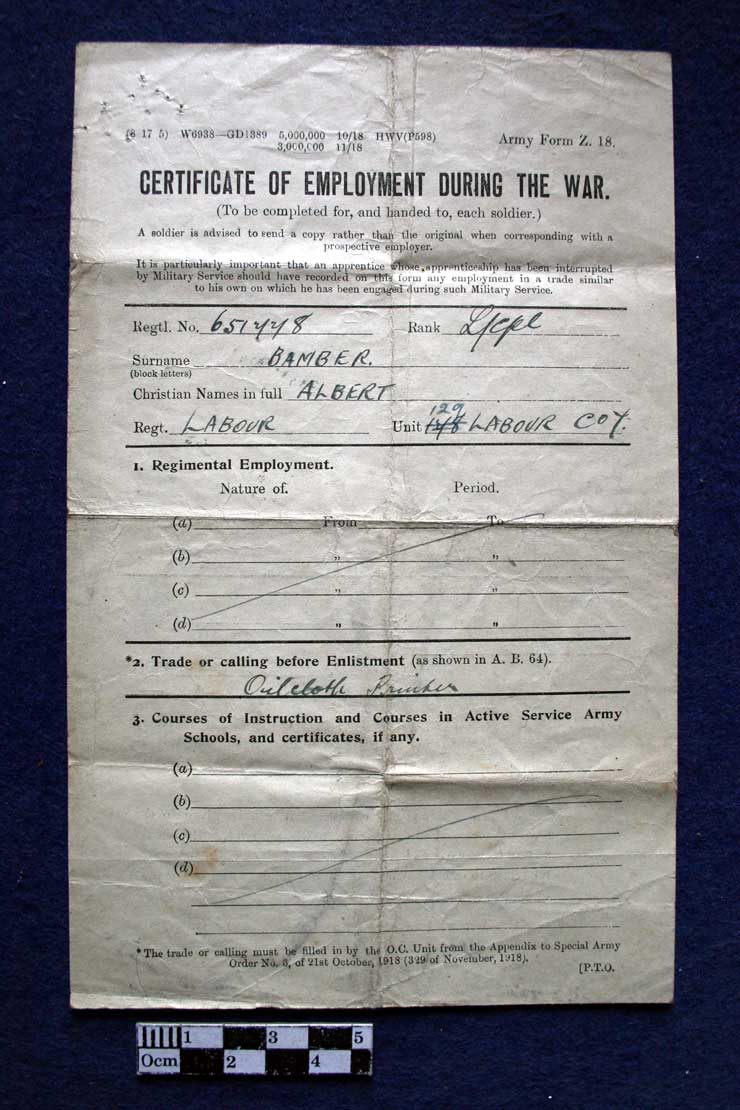 (6 17 5) W6938—GD1389 5,000,000 10/18 HWV(P598)
3,000,000 11/18
Army Form Z. 18.
CERTIFICATE OF EMPLOYMENT DURING THE WAR.
(To be completed for, and handed to, each soldier.)
A soldier is advised to send a copy rather than the original when corresponding with a
prospective employer.
It is particularly important that an apprentice whose apprenticeship has been interrupted
by Military Service should have recorded on this form any employment in a trade similar
to his own on which he has been engaged during such Military Service.
Regtl. No. 651448 Rank L/Cpl
Surname BAMBER.
(block letters)
Christian Names in full ALBERT
129
Regt. LABOUR Unit 148 LABOUR COY.
1. Regimental Employment.
Nature of. Period.
(a) From To
(b) " "
(c) " "
(d) " "
*2. Trade or calling before Enlistment (as shown in A. B. 64).
Oilcloth Printer
3. Courses of Instruction and Courses in Active Service Army
Schools, and certificates, if any.
(a)
(b)
(c)
(d)
*The trade or calling must be filled in by the O.C. Unit from the Appendix to Special Army
Order No. 5, of 21st October, 1918 (329 of November, 1918).
[P.T.O.
1 3 5
0cm 2 4